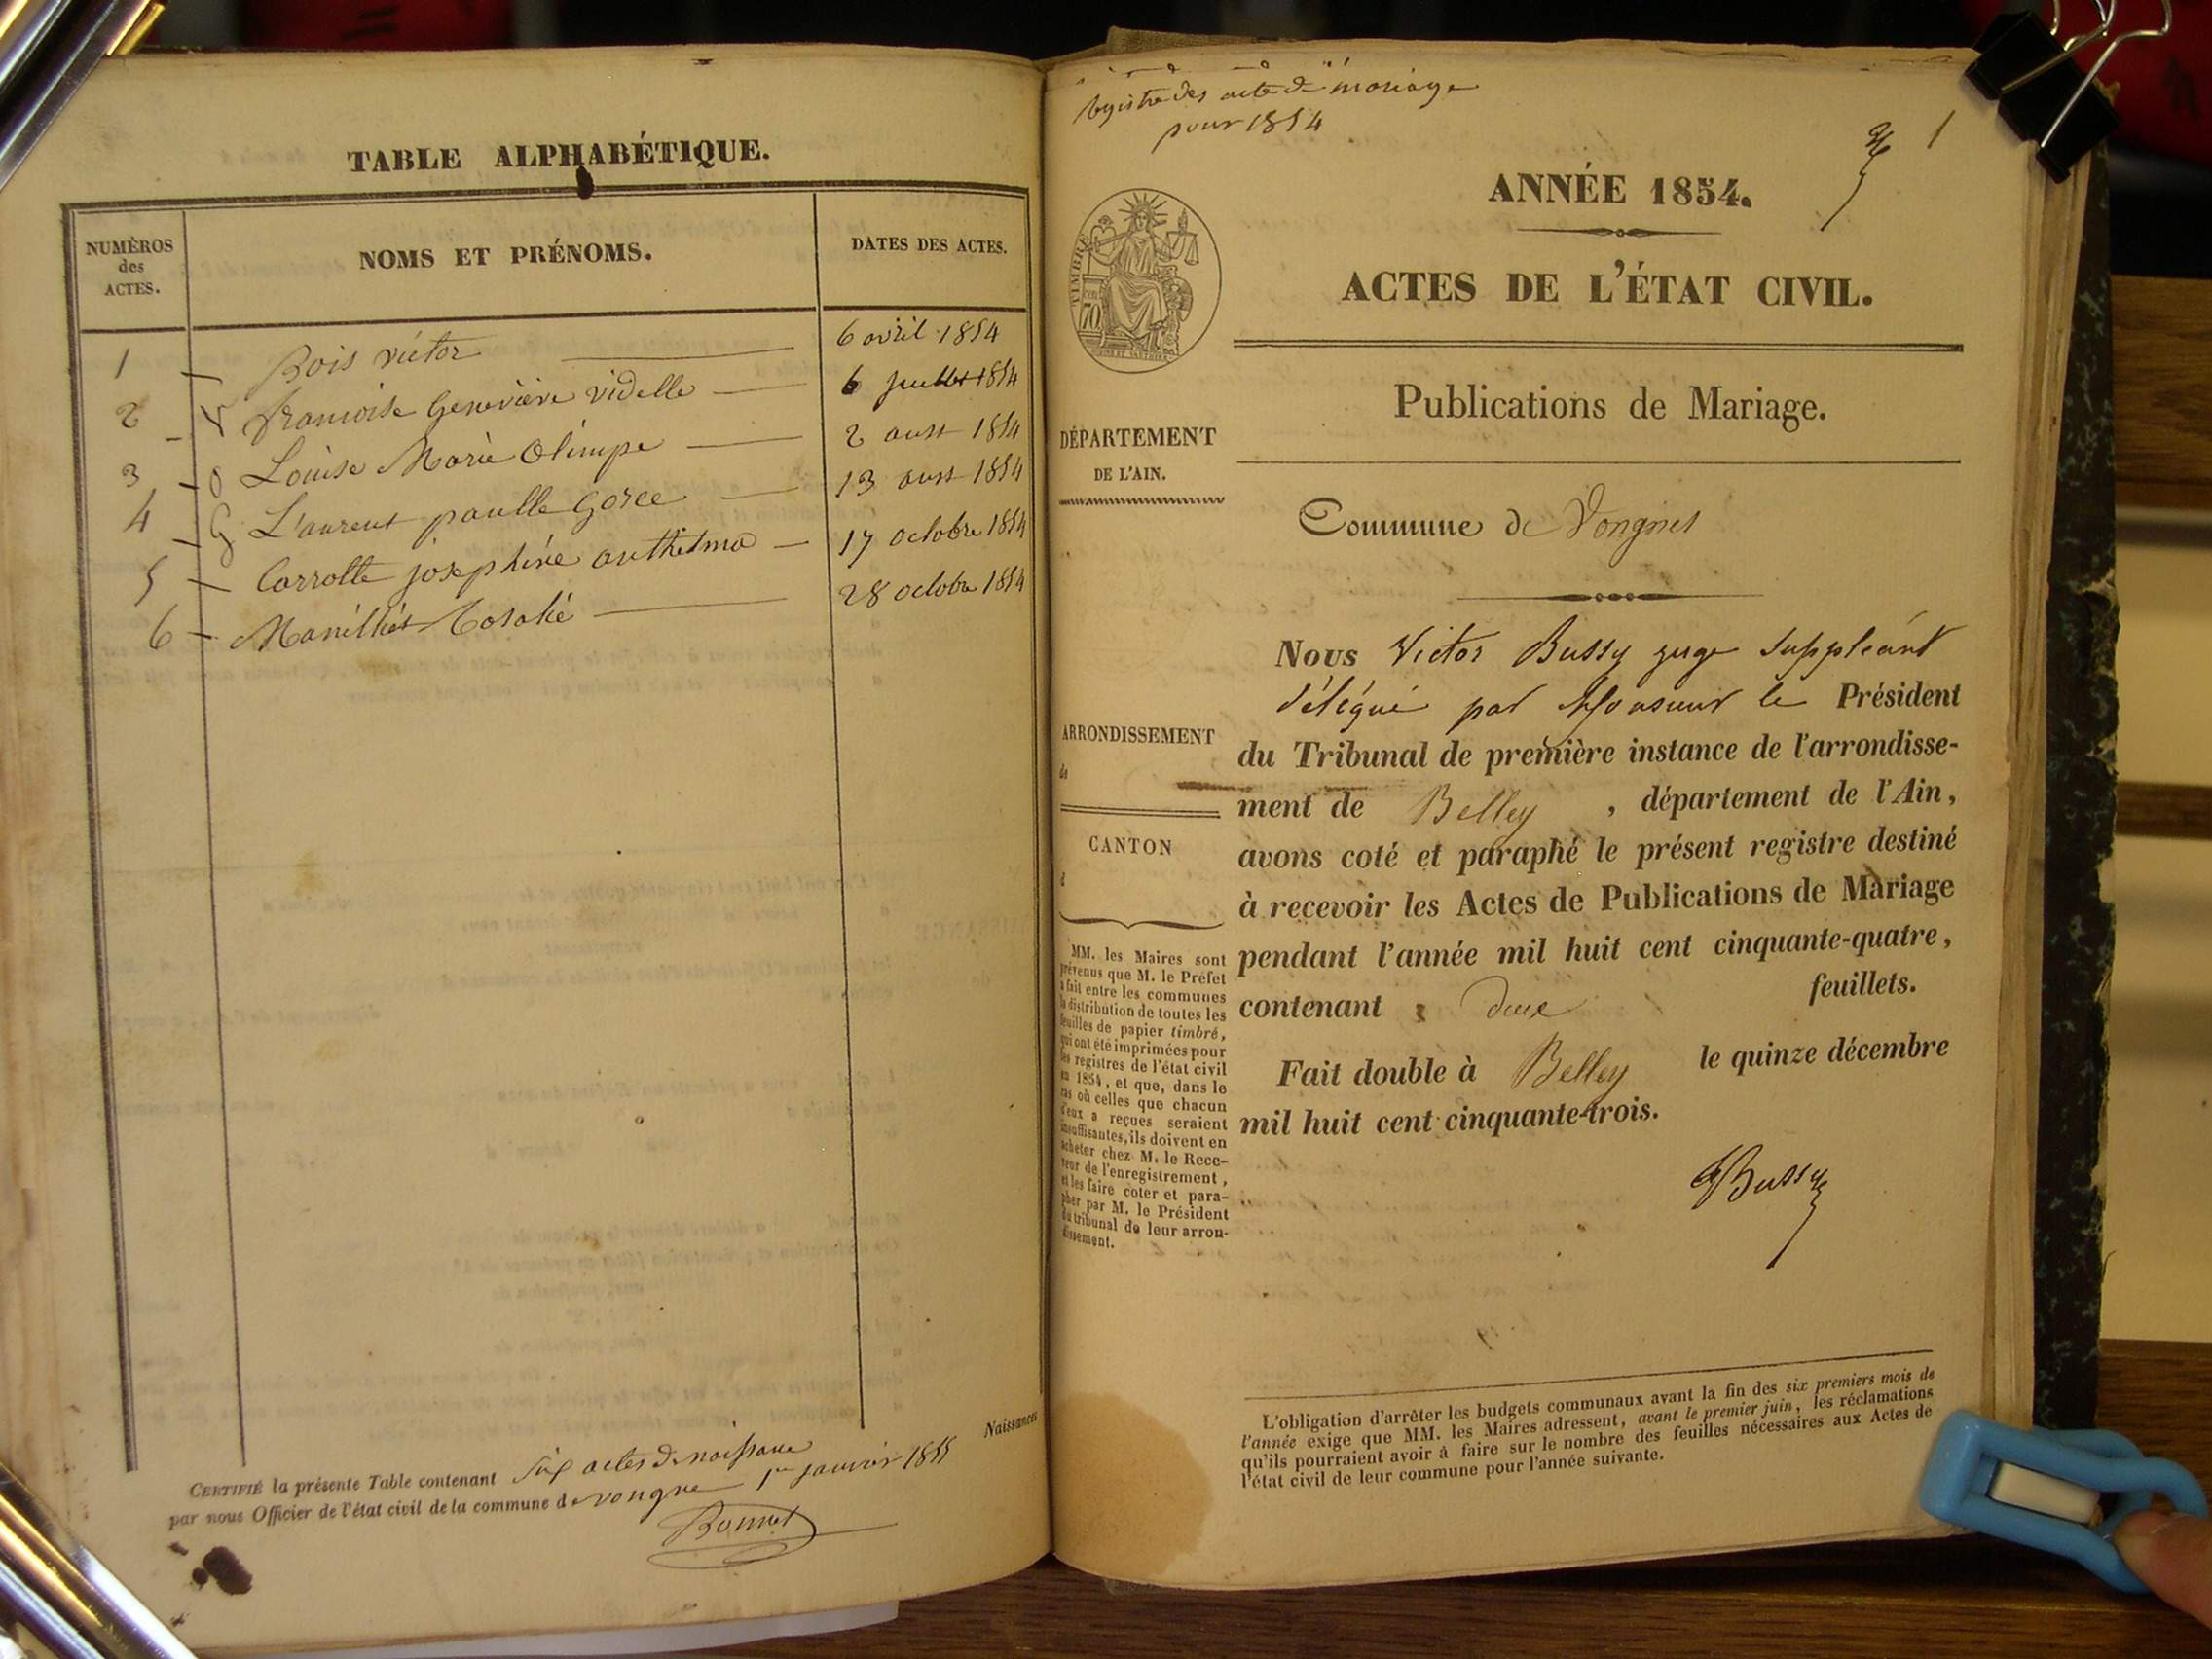 TABLE ALPHABÉTIQUE.
NUMÉROS
des
ACTES.
NOMS ET PRÉNOMS.
DATES DES ACTES.
1 Bois victor 6 avril 1854
2 V francoise Geneviève videlle 6 juillet 1854
3 O Louise Marie Olimpe 2 aust 1854
4 G L'aurent paulle Goree 13 aust 1854
5 Carrotte joséphine anthelma 17 octobre 1854
6 28 octobre 1854
Naissances
CERTIFIÉ la présente Table contenant six actes de naissance
par nous Officier de l'état civil de la commune de vongne 1er janvier 1855
Bonnet
registre des acte de mariage
pour 1854
1
ANNÉE 1854.
ACTES DE L'ÉTAT CIVIL.
TIMBRE
70
Publications de Mariage.
DÉPARTEMENT
DE L'AIN.
Commune de Vongnes
Nous Victor Bussy juge suppléant
délégué par Monsieur le Président
du Tribunal de première instance de l'arrondisse-
ment de Belley , département de l'Ain,
avons coté et paraphé le présent registre destiné
à recevoir les Actes de Publications de Mariage
pendant l'année mil huit cent cinquante-quatre,
contenant deux feuillets.
Fait double à Belley le quinze décembre
mil huit cent cinquante-trois.
Bussy
ARRONDISSEMENT
de
CANTON
d
MM. les Maires sont
prévenus que M. le Préfet
a fait entre les communes
la distribution de toutes les
feuilles de papier timbré,
qui ont été imprimées pour
les registres de l'état civil
en 1854, et que, dans le
cas où celles que chacun
d'eux a reçues seraient
insuffisantes, ils doivent en
acheter chez M. le Rece-
veur de l'enregistrement,
et les faire coter et para-
pher par M. le Président
du tribunal de leur arron-
dissement.
L'obligation d'arrêter les budgets communaux avant la fin des six premiers mois de
l'année exige que MM. les Maires adressent, avant le premier juin, les réclamations
qu'ils pourraient avoir à faire sur le nombre des feuilles nécessaires aux Actes de
l'état civil de leur commune pour l'année suivante.